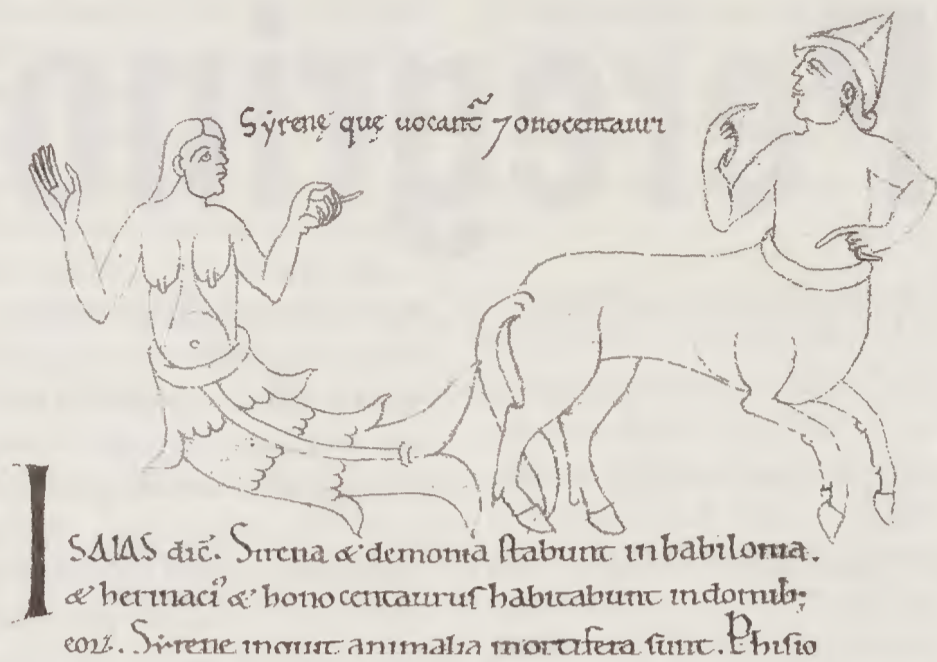 Syrenę quę uocant̃ ⁊ onocentauri
ISAIAS dic̄. Sirena & demonia stabunt in babilonia.
& herinaci᷒ & honocentaurus habitabunt in domib;
eoꝝ. Syrene inquit animalia mortifera sunt. Phisio